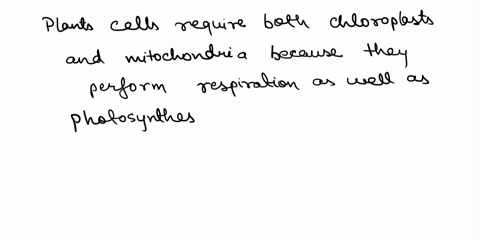 Plants cells require both chloroplasts
and mitochondria because they
perform respiration as well as
photosynthes